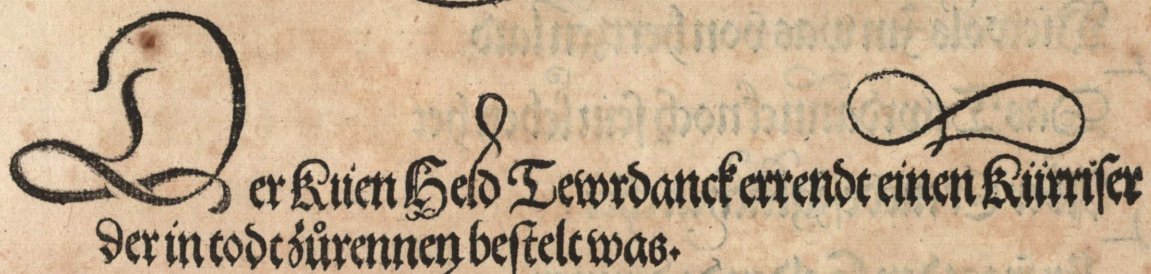 Der Kuen Held Tewrdanck errendt einen Kürriser
der in todt zůrennen bestelt was.